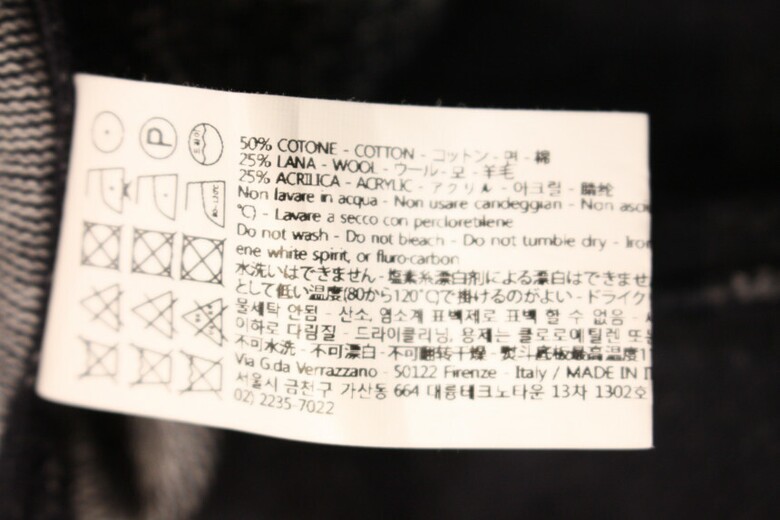 P
드라이
80~120℃
50% COTONE - COTTON - コットン - 면 - 棉
25% LANA - WOOL - ウール - 모 - 羊毛
25% ACRILICA - ACRYLIC - アクリル - 아크릴 - 腈纶
Non lavare in acqua - Non usare candeggian - Non asci
℃) - Lavare a secco con percloretilene
Do not wash - Do not bleach - Do not tumble dry - Iron
ene white spirit, or fluro-carbon
水洗いはできません - 塩素系漂白剤による漂白はできませ
として低い温度(80から120℃)で掛けるのがよい - ドライク
물세탁 안됨 - 산소, 염소계 표백제로 표백 할 수 없음 -
이하로 다림질 - 드라이클리닝, 용제는 클로로에틸렌 또는
不可水洗 - 不可漂白 - 不可翻转干燥 - 熨斗底板最高温度1
Via G.da Verrazzano - 50122 Firenze - Italy / MADE IN I
서울시 금천구 가산동 664 대륭테크노타운 13차 1302호
02) 2235-7022